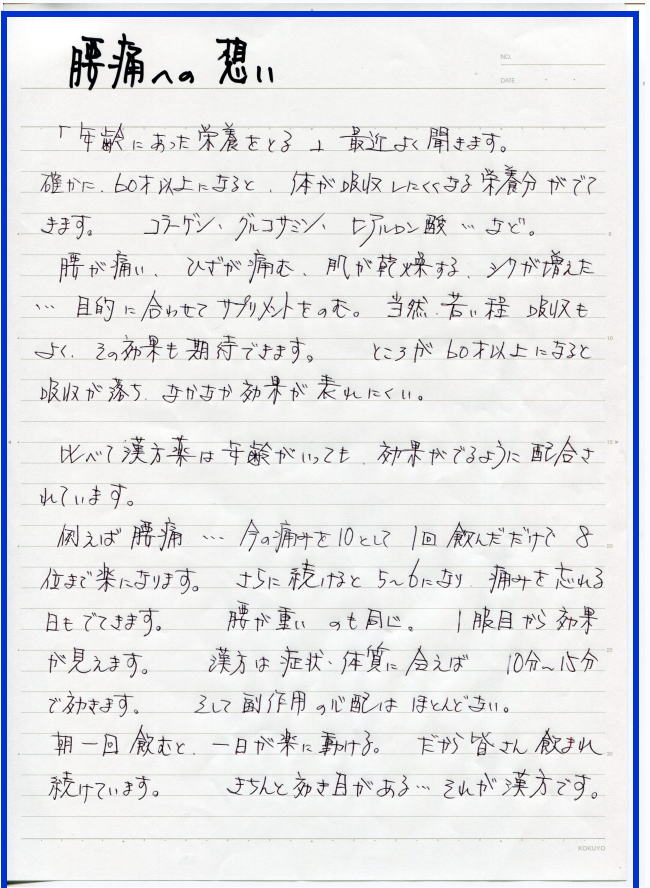 腰痛への想い
NO.
DATE
「年齢にあった栄養をとる」 最近よく聞きます。
確かに、60才以上になると、体が吸収しにくくなる栄養分がでて
きます。 コラーゲン、グルコサミン、ヒアルロン酸…など。
腰が痛い、ひざが痛む、肌が乾燥する、シワが増えた
… 目的に合わせてサプリメントをのむ。当然、若い程 吸収も
よく、その効果も期待できます。 ところが60才以上になると
吸収が落ち、なかなか効果が表れにくい。
比べて漢方薬は年齢がいっても、効果がでるように配合さ
れています。
例えば腰痛 … 今の痛みを10として 1回飲んだだけで 8
位まで楽になります。 さらに続けると5〜6になり、痛みを忘れる
日もでてきます。 腰が重いのも同じ。 1服目から効果
が見えます。 漢方は症状・体質に合えば 10分〜15分
で効きます。 そして副作用の心配はほとんどない。
朝一回飲むと、一日が楽に動ける。 だから皆さん飲まれ
続けています。 きちんと効き目がある…それが漢方です。
KOKUYO